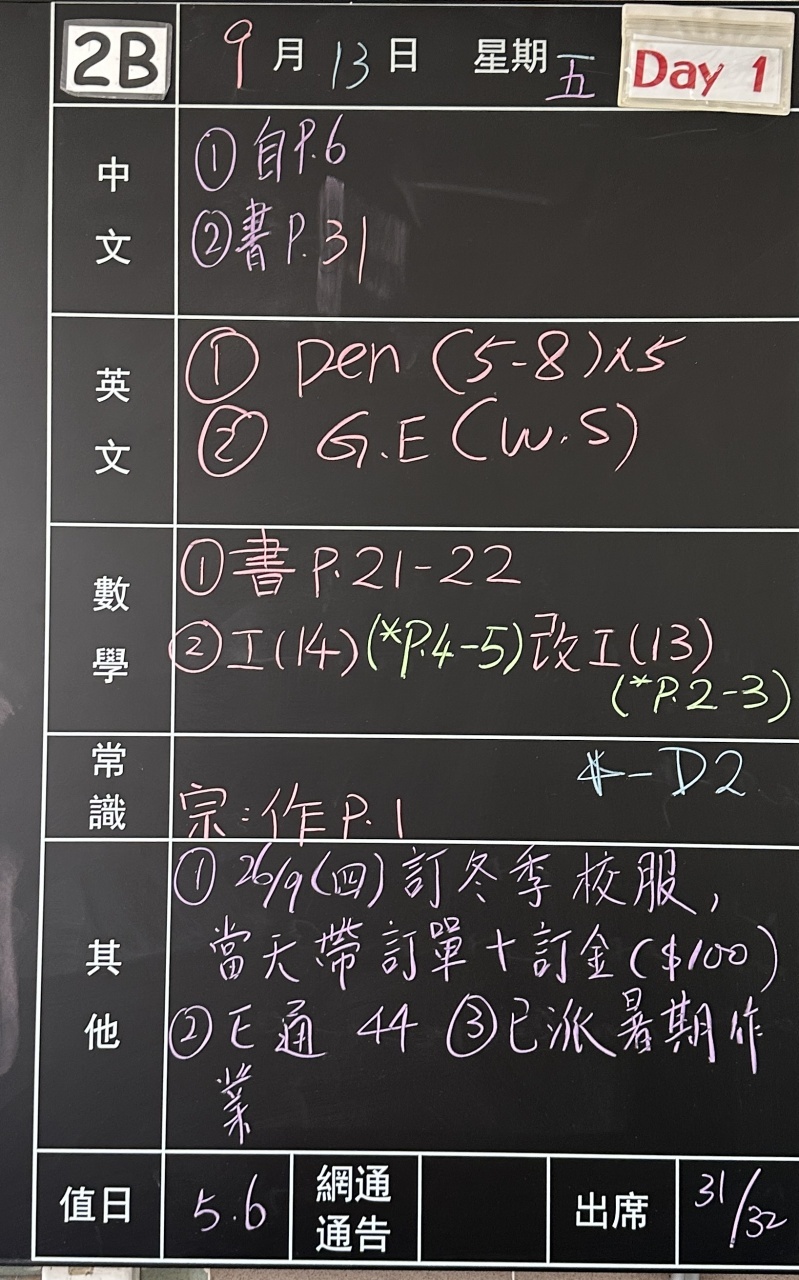 2B 9月13日 星期五 Day 1
中文
①自P.6
②書P.31
英文
① Pen (5-8)x5
② G.E (W.S)
數學
①書P.21-22
②工(14)(*P.4-5)改工(13)
(*P.2-3)
常識
*-D2
宗:作P.1
其他
①26/9(四)訂冬季校服,
當天帶訂單+訂金($100)
②E通 44 ③已派暑期作
業
值日 5.6 網通通告 出席 31/32